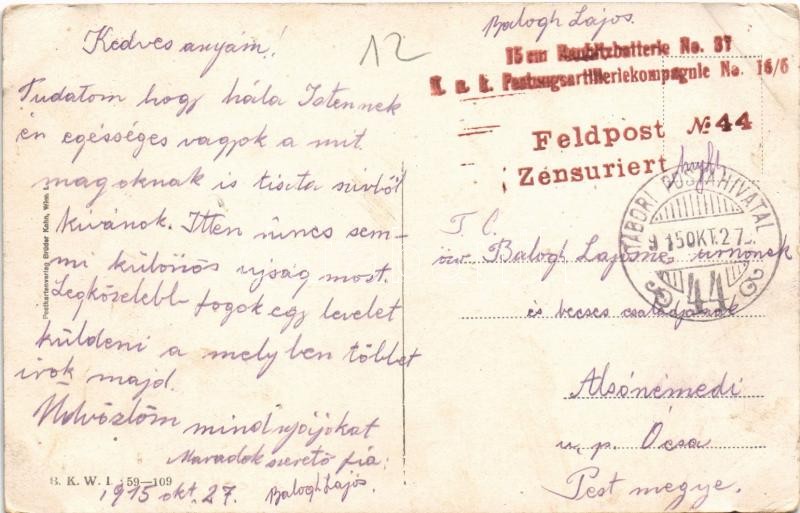 Kedves anyám!
12
Tudatom hogy hála Istennek
én egésséges vagyok a mit
magoknak is tiszta szivből
kivánok. Itten nincs sem-
mi különös ujság most.
Legközelebb fogok egy levelet
küldeni a melyben többet
irok majd.
Üdvözlöm mindnyájokat
Maradok szerető fia:
Balogh Lajos.
1915 okt. 27.
B. K. W. I. 59—109
Postkartenverlag Brüder Kohn, Wien I.
Balogh Lajos.
15 cm Haubitzbatterie No. 37
K. u. k. Festungsartilleriekompagnie No. 16/6
Feldpost № 44
Zensuriert
TÁBORI POSTAHIVATAL
915 OKT. 27
44
T. C.
özv. Balogh Lajosné úrnőnek
és becses családjának
Alsónémedi
u. p. Ócsa
Pest megye.